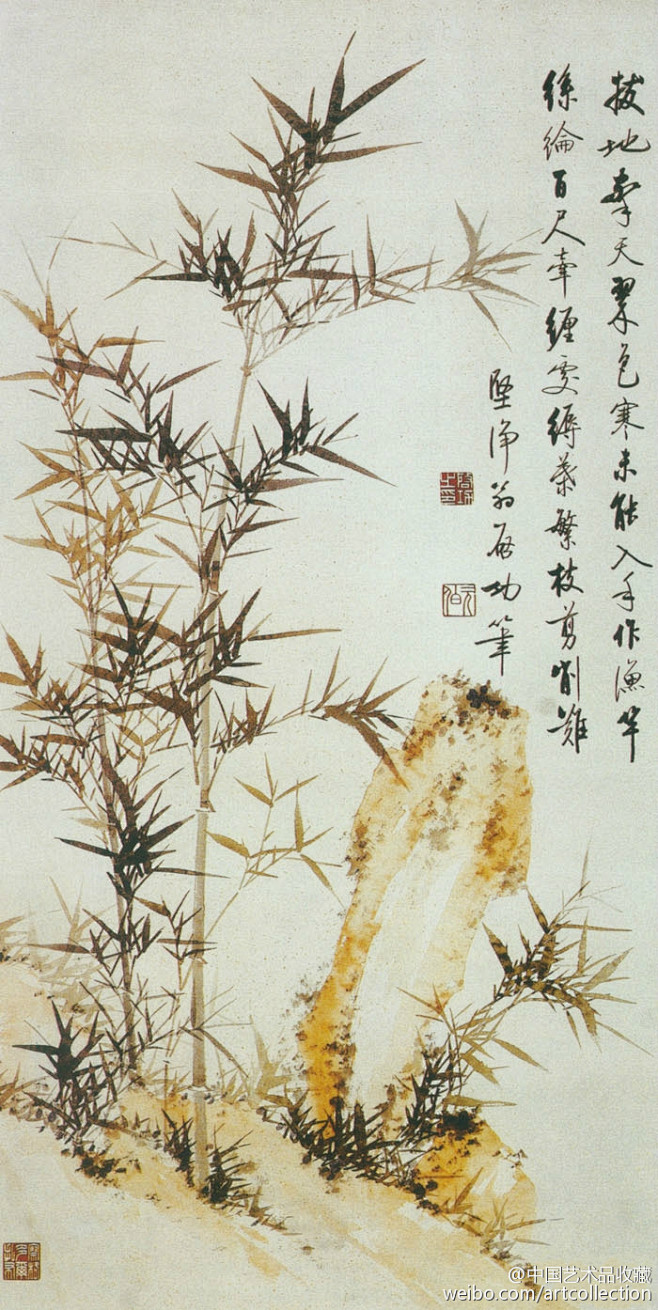 拔地天翠色寒未能入手作漁竿
絲綸百尺牽纏處縟葉繁枝剪削難
堅淨翁啟功筆
啟功之印
元白
@中国艺术品收藏
weibo.com/artcollection